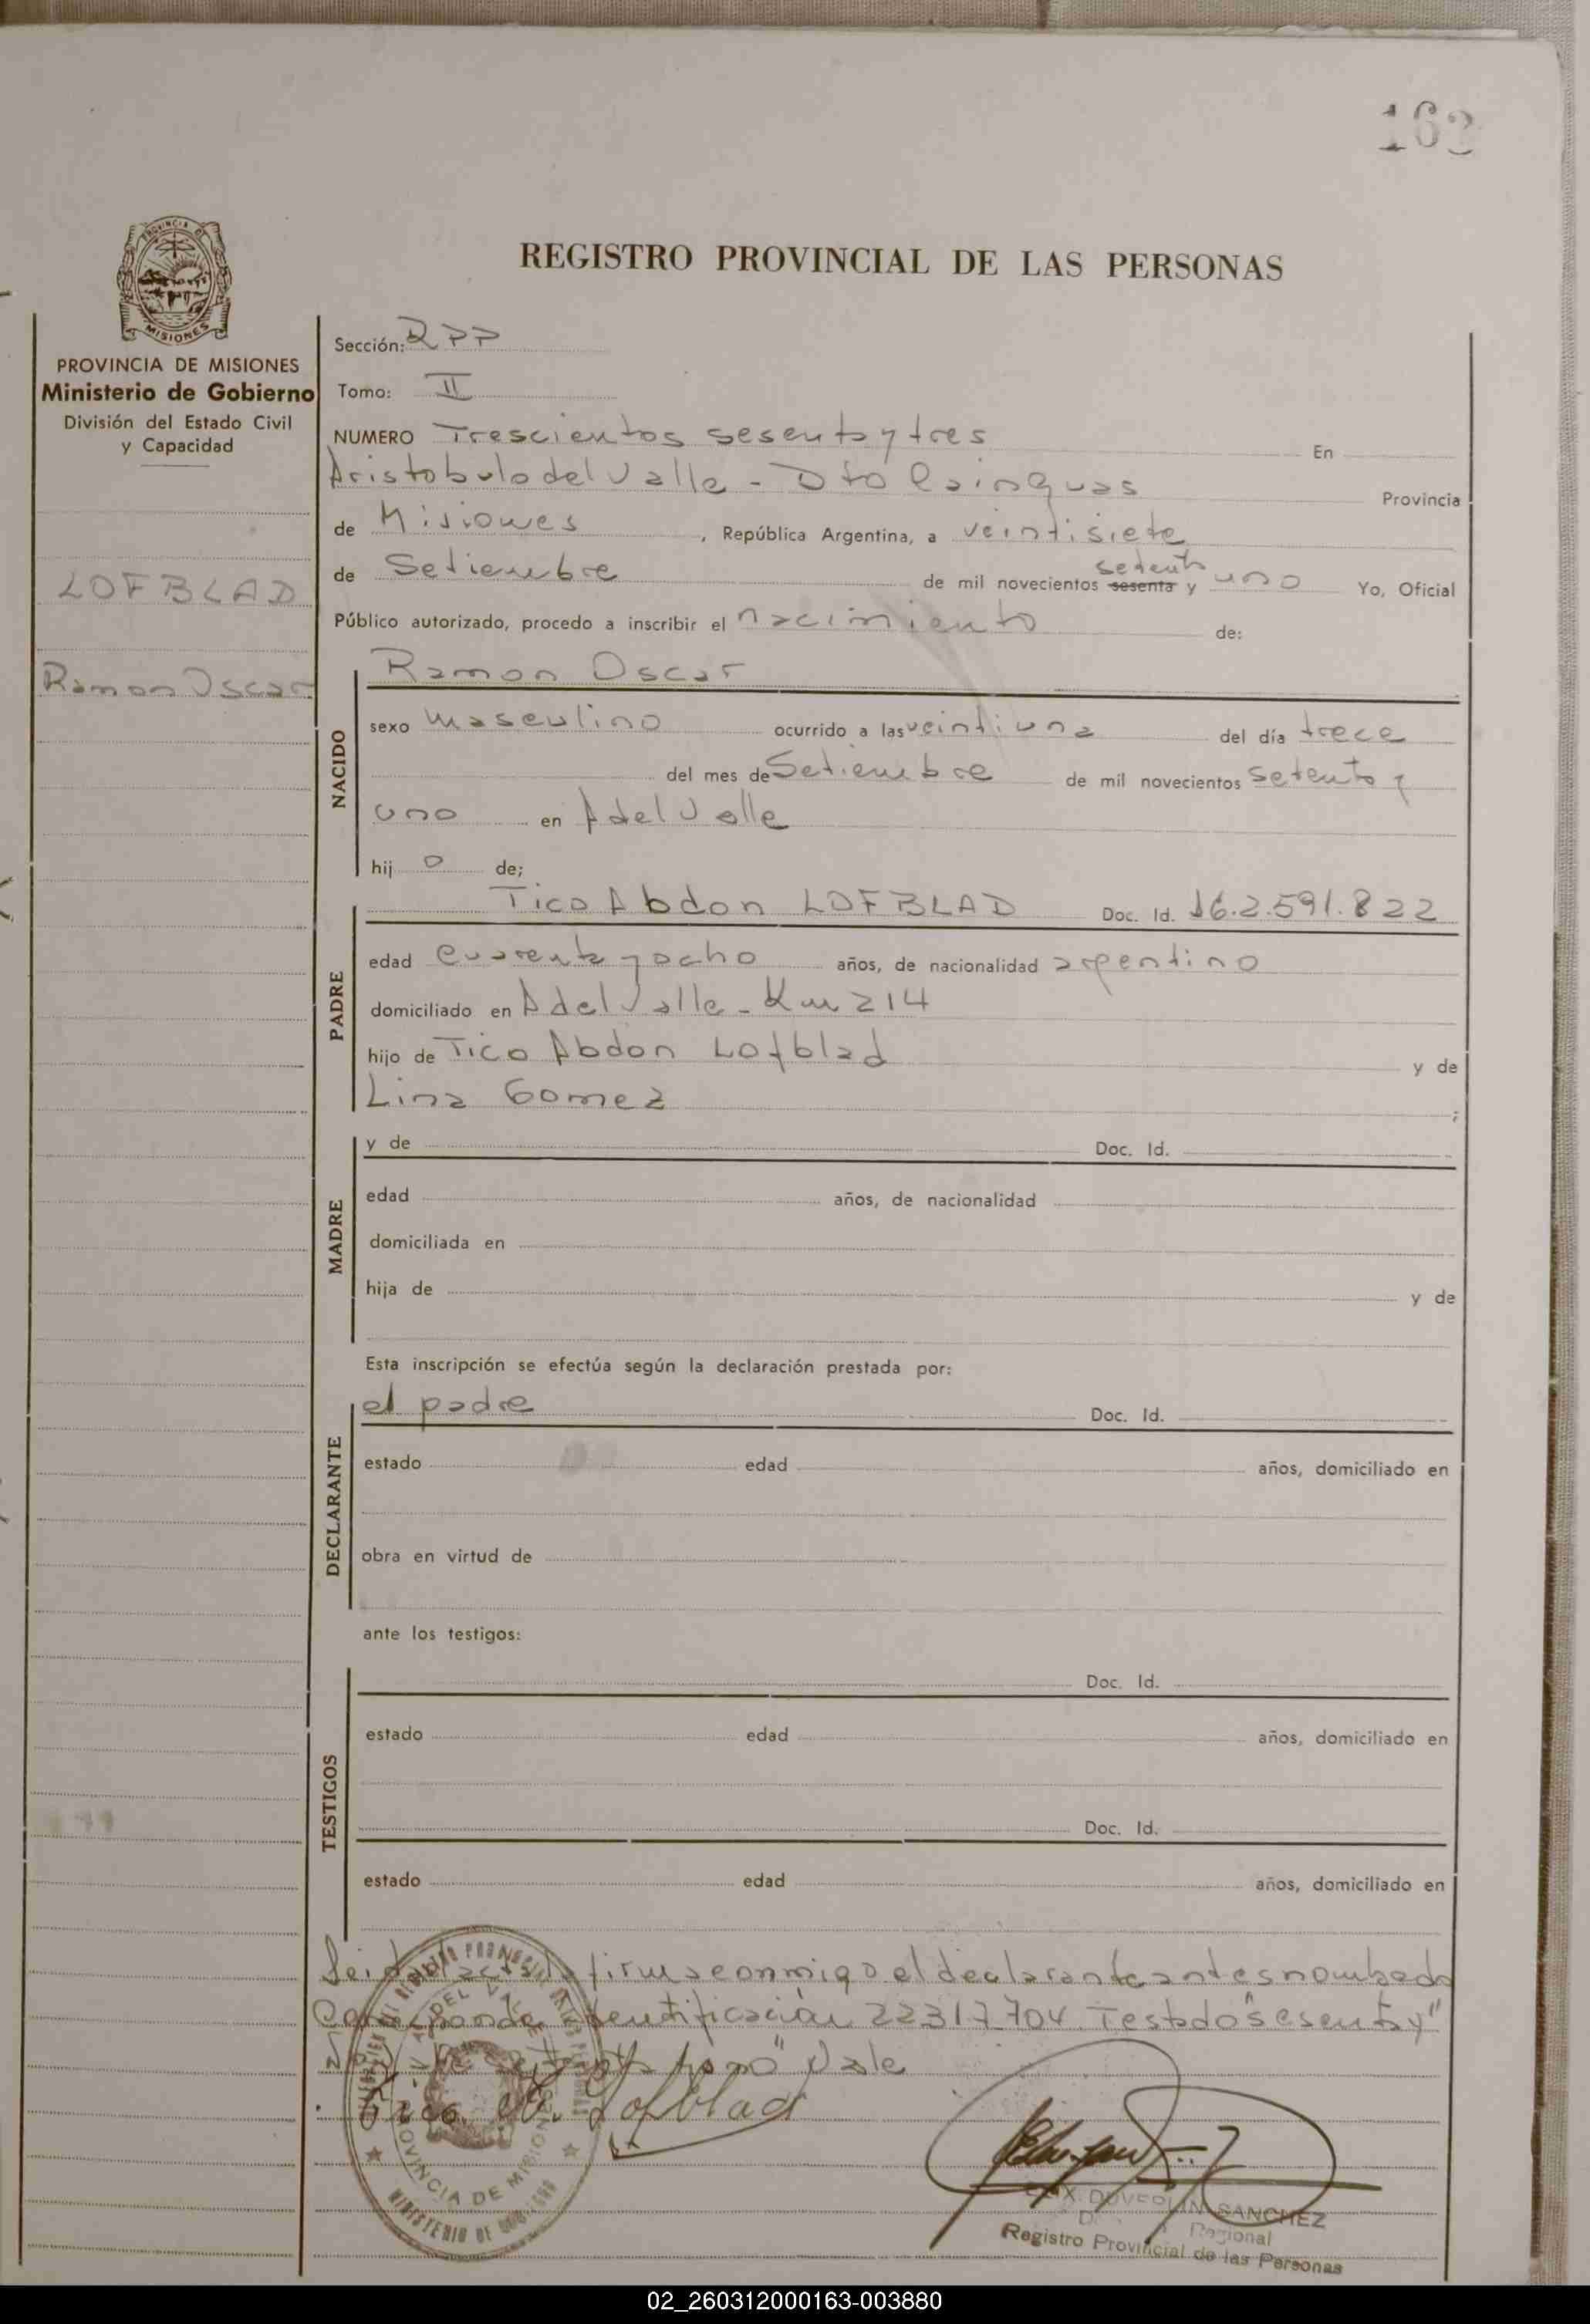 162
REGISTRO PROVINCIAL DE LAS PERSONAS
PROVINCIA DE MISIONES
Ministerio de Gobierno
División del Estado Civil
y Capacidad
LOFBLAD
Ramon Oscar
Sección: RPP
Tomo: II
NUMERO Trescientos sesenta y tres En
Aristobulo del Valle - Dto Cainguas Provincia
de Misiones, República Argentina, a veintisiete
setenta
de Setiembre de mil novecientos sesenta y uno Yo, Oficial
Público autorizado, procedo a inscribir el nacimiento de:
NACIDO
Ramon Oscar
sexo masculino ocurrido a las veintiuna del día trece
del mes de Setiembre de mil novecientos setenta y
uno en A del Valle
hij o de;
PADRE
Tico Abdon LOFBLAD Doc. Id. 16.2.591.822
edad cuarenta y ocho años, de nacionalidad argentino
domiciliado en A del Valle - Km 214
hijo de Tico Abdon Lofblad y de
Lina Gomez ;
MADRE
y de Doc. Id.
edad años, de nacionalidad
domiciliada en
hija de y de
Esta inscripción se efectúa según la declaración prestada por:
DECLARANTE
el padre Doc. Id.
estado edad años, domiciliado en
obra en virtud de
ante los testigos:
TESTIGOS
Doc. Id.
estado edad años, domiciliado en
Doc. Id.
estado edad años, domiciliado en
Leida el acta la firma conmigo el declarante antes nombrado
Corresponde identificación 22317704. Testado "sesenta y"
Vale
Tico A. Lofblad
SANCHEZ
Regional
Registro Provincial de las Personas
PROVINCIA DE MISIONES
MINISTERIO DE GOBIERNO
02_260312000163-003880